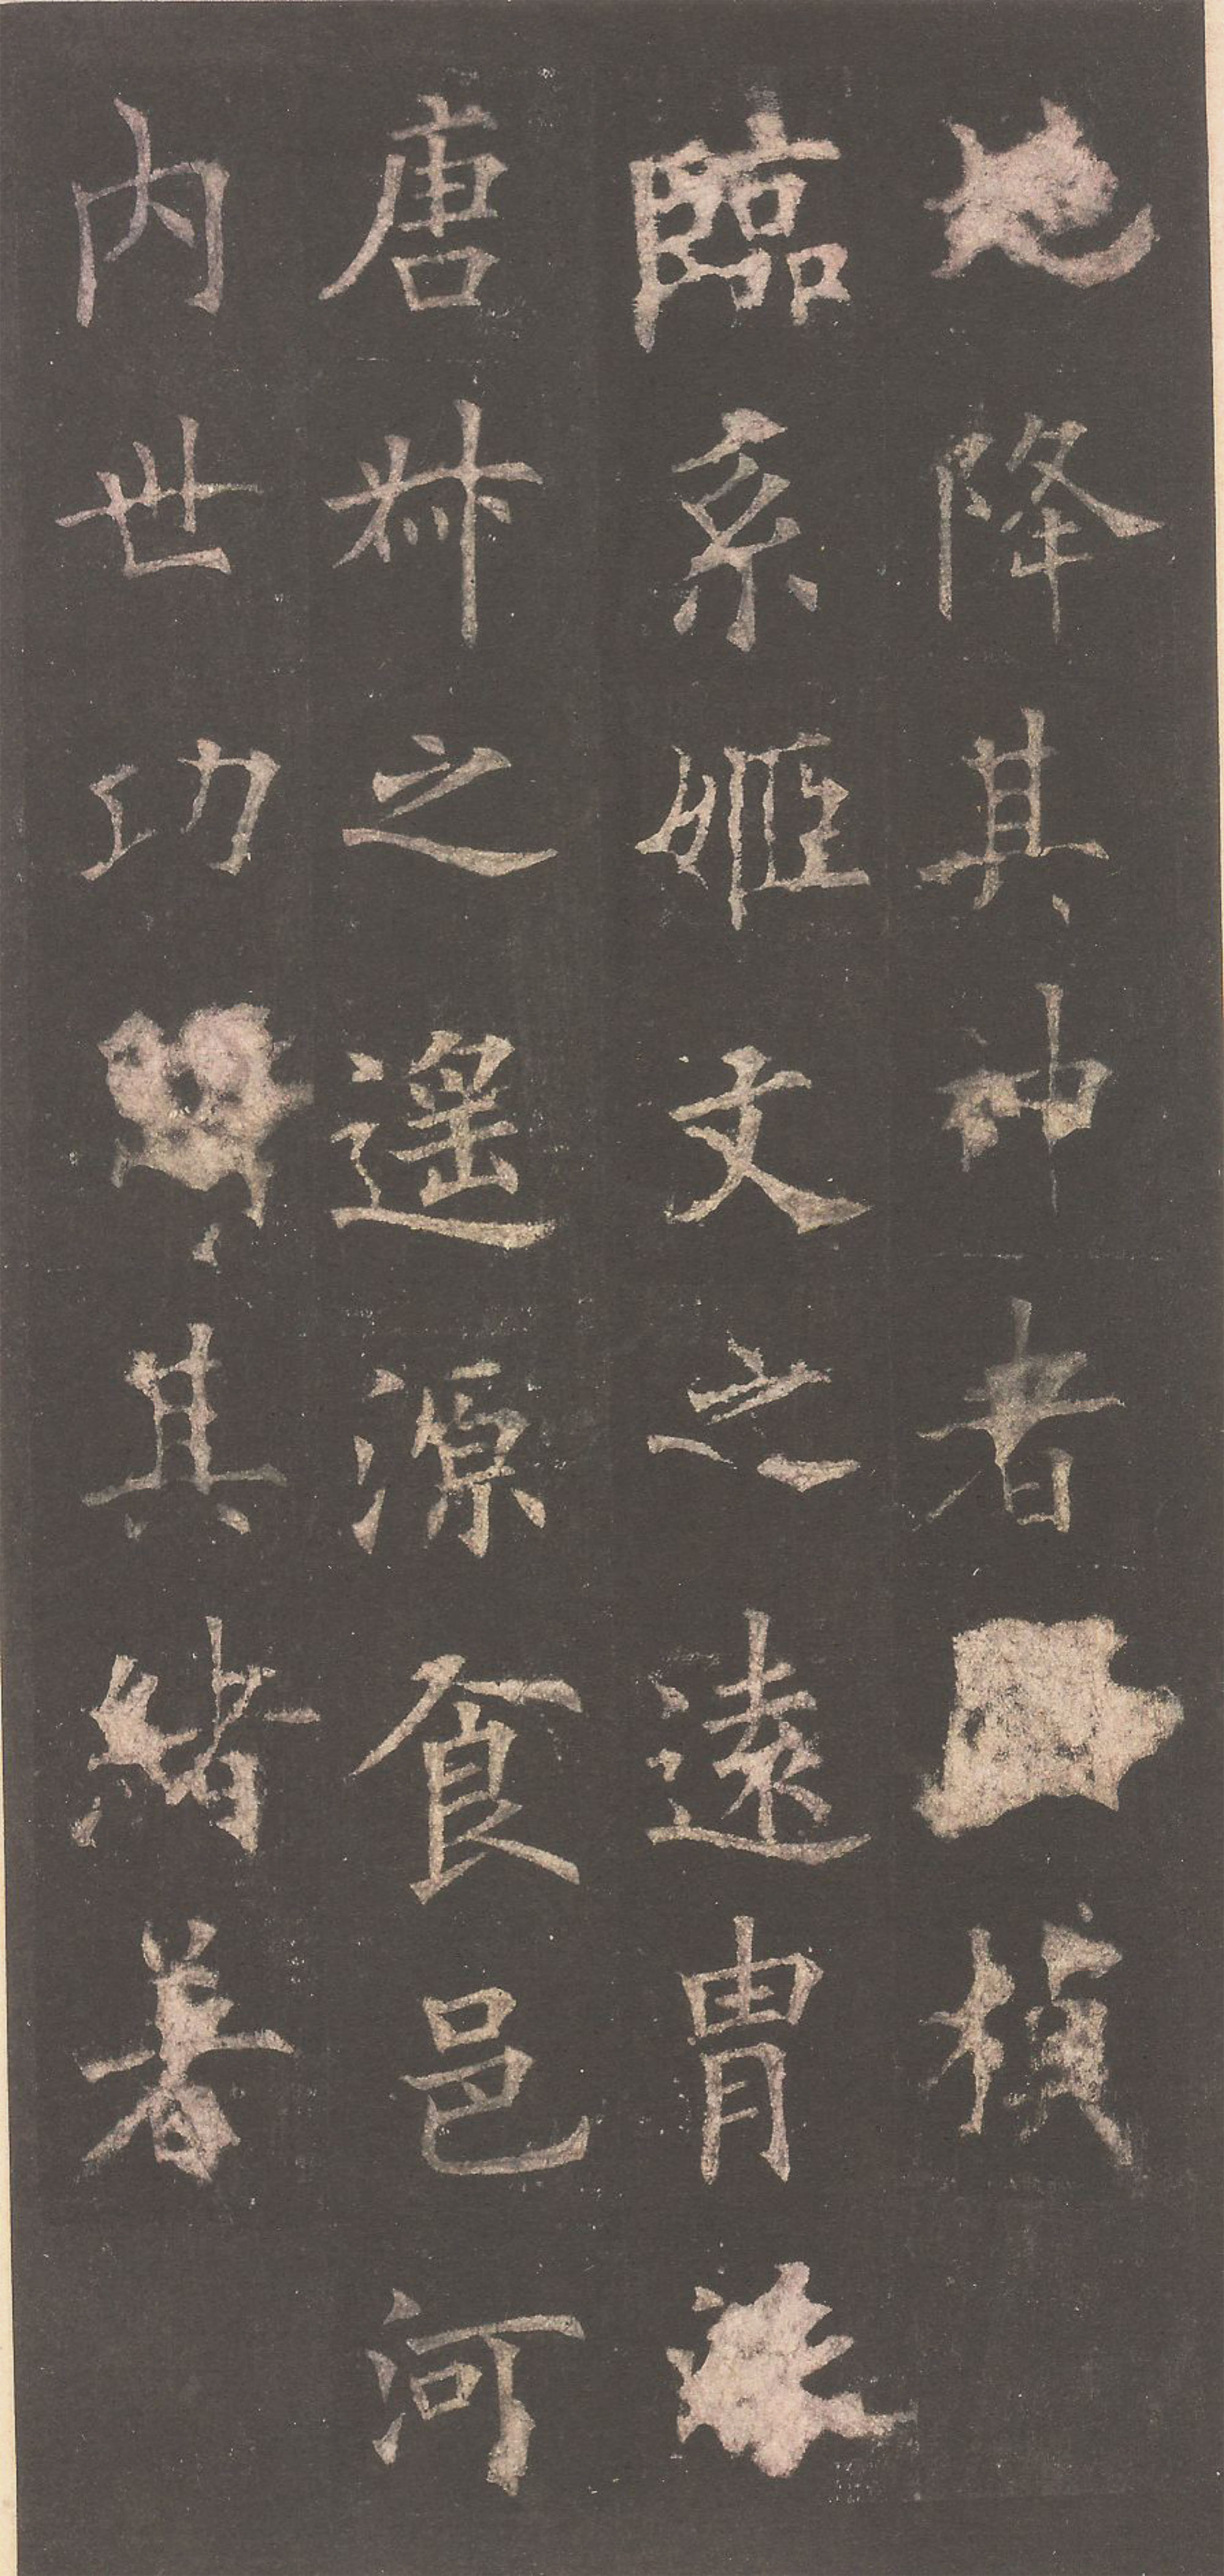 地降其神者楨
臨系姬文之遠胄
唐叔之遙源食邑河
内世功其緒著